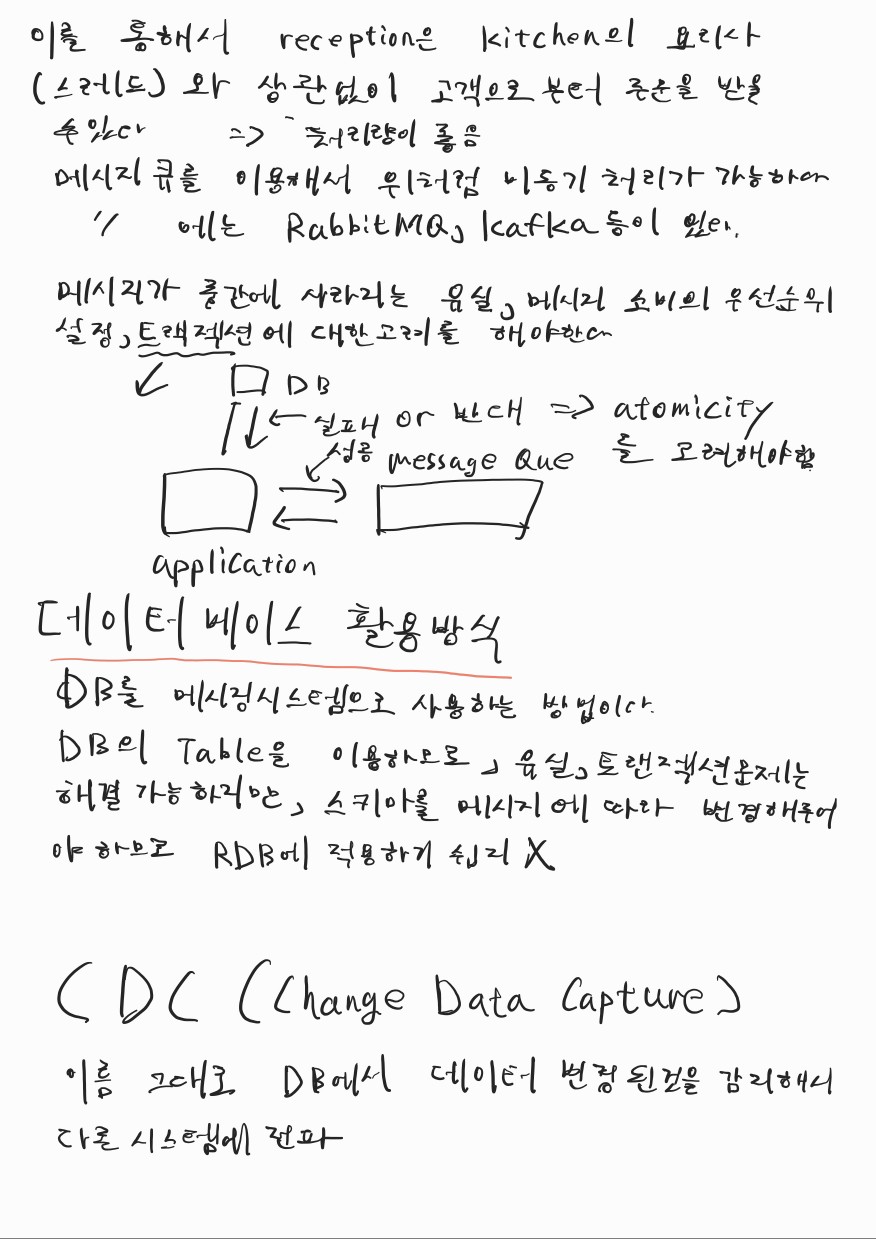 이를 통해서 reception은 kitchen의 요리사
(스레드)와 상관없이 고객으로 본터 주문을 받을
수있다 => 처리량이 좋음
메시지 큐를 이용해서 위처럼 비동기 처리가 가능하다
〃 에는 RabbitMQ, kafka등이 있다.
메시지가 중간에 사라지는 유실, 메시지 소비의 우선순위
설정, 트랙젝션에 대한고려를 해야한다
DB
실패 or 반대 => atomicity
를 고려해야함
성공
message Que
application
데이터베이스 활용방식
DB를 메시징시스템으로 사용하는 방법이다.
DB의 Table을 이용하므로, 유실, 트랜젝션문제는
해결 가능하지만, 스키마를 메시지에 따라 변경해주어
야 하므로 RDB에 적용하기 쉽지 X
CDC (Change Data Capture)
이름 그대로 DB에서 데이터 변경된것을 감지해서
다른 시스템에 전파